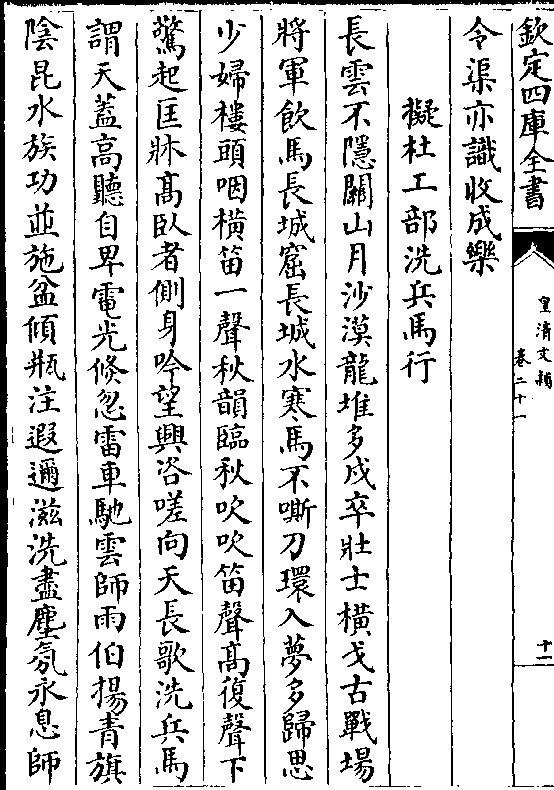 欽定四庫全書
皇清文穎
卷二十一
十一
令渠亦識收成樂
擬杜工部洗兵馬行
長雲不隱關山月沙漠龍堆多戍卒壯士橫戈古戰場
將軍飲馬長城窟長城水寒馬不嘶刀環入夢多歸思
少婦樓頭咽橫笛一聲秋韻臨秋吹吹笛聲高復聲下
驚起匡牀高臥者側身吟望興咨嗟向天長歌洗兵馬
謂天蓋高聽自卑電光倐忽雷車馳雲師雨伯揚青旗
陰昆水族功並施盆傾瓶注遐邇滋洗盡塵氛永息師